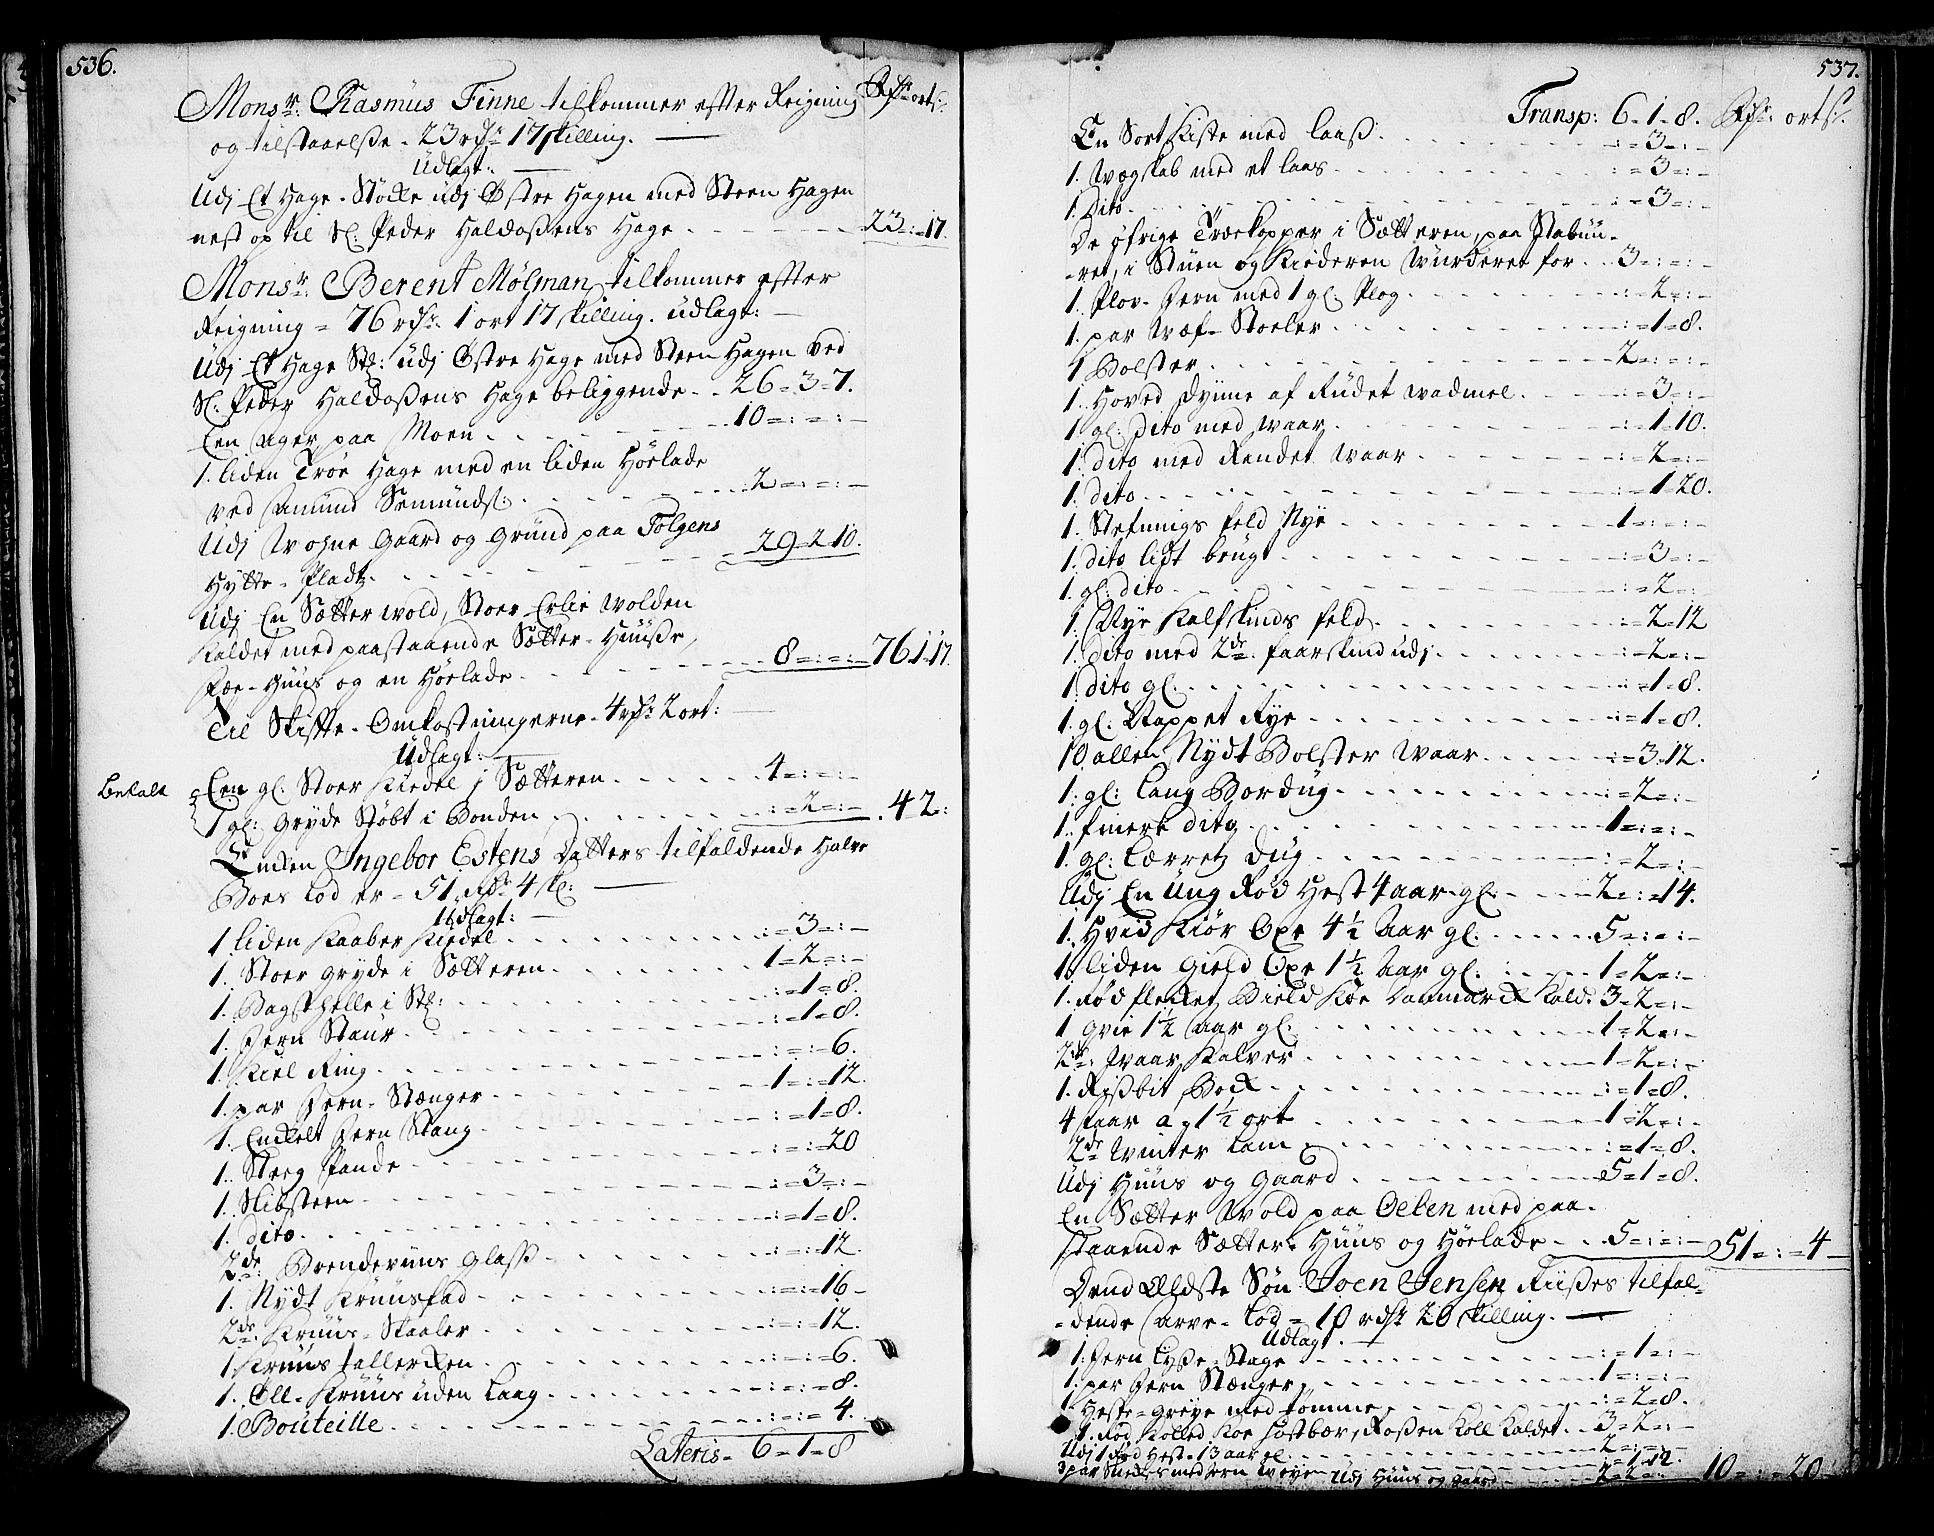 536.
Rdr. ort s:
Monsr. Rasmus Finne tilkommer efter Reigning
og tilstaaelse - 23 rdr 17 skilling.
Udlagt.
Udj Et Hage-Støcke udj Østre Hagen med Steen Hagen
nest op til Sl: Peder Haldoßens Hage - - - 23=:=17.
Monsr. Berent Mølman, tilkommer efter
Reigning = 76 rdr. 1 ort 17 skilling. Udlagt:
Udj Et Hage St: udj Østre Hage med Steen Hagen ved
Sl: Peder Haldoßens Hage beliggende - - 26=3=7.
Een Ager paa Moen - - - 10=:=:-
1. liden Trøe Hage med en liden Høelade
ved Amund Semunds. - - - 2=:=:-
Udj Wohne Gaard og Grund paa Tolgens
Hytte-Pladtz. - - - 29=2=10.
Udj En Sætter wold, Stoer-Erlie wolden
Kaldet med paastaaende Sætter-Huuße,
Fæe-Huus og en Høelade - - - 8=:=:- 76.1.17.
Til Skifte-Omkostningerne - 4 rdr 2 ort:
Udlagt:
Betalt
Een gl. Stoer Kiedel j Sætteren - - - 4=:=:-
1 gl: Gryde Støbt i Bonden - - - :=2=:- 42:
Enken Ingebor Estens Datters tilfaldende Halve
Boes Lod er - 51 Rdr 4 sk:
Udlagt:
1 liden Kaaber Kiedel - - - :=3=:-
1. Stoer gryde i Sætteren - - - 1=2=:-
1. Bagsthelle i St: - - - :=1=8.
1. Jern Staur - - - :=1=8.
1. Kiel Ring - - - :=:=6.
1. par Jern-Stænger - - - 1=:=12.
1. Enckelt Jern Stang - - - :=1=8.
1. Steeg Pande - - - :=:=20
1. Slibsteen - - - :=3=:-
1. dito - - - :=1=8.
2de Brendeviins Glaß - - - :=:=12.
1. Nydt Kruusfad - - - :=:=16-
2de Kruus-Skaaler - - - :=:=12.
1 Kruus tallercken - - - :=:=6.
1. Øll-Kruus uden Laag - - - :=:=8.
1 Bouteille - - - :=:=4.
Lateris - 6=1=8
537.
Transp: 6-1-8. Rdr: ort s:
En Sort Kiste med Laaß - - - :=3=:-
1. Wegskab med et laas - - - :=3=:-
1. Dito - - - :=3=:-
De øfrige Træekopper i Sætteren, paa Stabuu-
-ret, i Stuen og Kiederen wurderet for - - 3=:=:-
1. Plov-Jern med 1 gl: Plog - - - :=2=:-
1. par Wæf-Stoeler - - - :=1=8.
1 Bolster - - - 2=:=:-
1. Hoved Dynne af Rudet wadmel - - - :=3=:-
1 gl: Dito med waar - - - :=1=10.
1. dito med Rendet waar - - - :=2=:-
1. dito - - - :=1=20.
1. Stefnings feld Nye - - - 1=:=:-
1. dito lidt brugt - - - :=3=:-
1. gl: dito - - - :=2=:-
1. Nye Kalfskinds feld - - - :=2=12
1. dito med 2de faarskind udj - - - :=2=:-
1. dito gl. - - - :=1=8.
1. gl: Nappet Rye - - - :=1=8.
10 allen Nydt Bolster waar - - - :=3=12.
1. gl: Lang Bordug - - - :=2=:-
1. finere dito - - - 1=:=:-
1. gl: Lærretz dug - - - :=2=:-
Udj En ung Rød Hest 4 aar gl: - - - 2=:=14.
1. Hvid Kiør Oxe 4½ Aar gl. - - - 5=:=:-
1. liden Gield Oxe 1½ Aar gl. - - - 1=2=:-
1. Rød flecket Bield Koe Danmarck Kald: 3=2=:-
1 qvie 1½ Aar gl. - - - 1=2=:-
2de: Waar Kalver - - - 1=2=:-
1. Rißbit Bock - - - :=1=8.
4 faar a 1½ ort - - - 1=2=:-
2de Winter Lam - - - :=1=8.
Udj Huus og Gaard - - - 5=1=8.
En Sætter Wold paa Oeden med paa-
staaende Sætter Huus og Høelade - - 5=:=:- 51=:=4-
Dend Eldste Søn Joen Jensen Riises tilfal-
-dende Arve-Lod = 10 rdr 20 skilling.
Udlagt.
1. Jern Lyße-Stage - - - :=1=:-
1. par Jern Stænger - - - 1=:=:-
1. Heste-greye med tømme - - - :=2=8.
1. Rød Kolled Koe Høstbær, Roßen Koll Kaldet. - 3=2=:-
Udj 1 Rød Hest - 13 aar gl - - - 2=:=:-
3 par med Jern - - - :=1=12.
Udj Huus og gaard - - - 2=2=:- 10=:=20